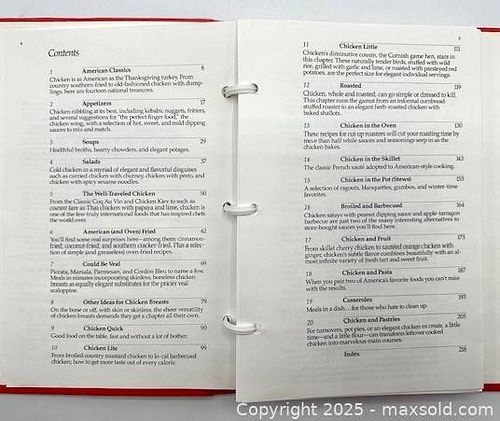 Contents
1 American Classics 5
Chicken is as American as the Thanksgiving turkey. From
country southern fried to old-fashioned chicken with dump-
lings, here are fourteen national treasures.
2 Appetizers 17
Chicken nibbling at its best, including kebabs, nuggets, fritters,
and several suggestions for "the perfect finger food," the
chicken wing, with a selection of hot, sweet, and mild dipping
sauces to mix and match.
3 Soups 29
Healthful broths, hearty chowders, and elegant potages.
4 Salads 37
Cold chicken in a myriad of elegant and flavorful disguises
such as curried chicken with chutney, chicken with pesto, and
chicken with spicy sesame noodles.
5 The Well-Traveled Chicken 50
From the Classic Coq Au Vin and Chicken Kiev to such as
current fare as Thai chicken with papaya and lime, chicken is
one of the few truly international foods that has inspired chefs
the world over.
6 American (and Oven) Fried 62
You'll find some real surprises here—among them: cinnamon-
fried, coconut-fried, and southern cracker-fried. Plus a selec-
tion of simple (and greaseless) oven-fried recipes.
7 Could Be Veal 69
Piccata, Marsala, Parmesan, and Cordon Bleu to name a few.
Meals in minutes incorporating skinless, boneless chicken
breasts as equally elegant substitutes for the pricier veal
scaloppine.
8 Other Ideas for Chicken Breasts 79
On the bone or off, with skin or skinless, the sheer versatility
of chicken breasts demands they get a chapter all their own.
9 Chicken Quick 90
Good food on the table, fast and without a lot of bother.
10 Chicken Lite 99
From broiled country mustard chicken to lo-cal barbecued
chicken; how to get more taste out of every calorie.
11 Chicken Little 111
Chicken's diminutive cousin, the Cornish game hen, stars in
this chapter. These naturally tender birds, stuffed with wild
rice, grilled with garlic and lime, or roasted with parsleyed red
potatoes, are the perfect size for elegant individual servings.
12 Roasted 119
Chicken, whole and roasted, can go simple or dressed to kill.
This chapter runs the gamut from an informal cornbread-
stuffed roaster to an elegant herb-roasted chicken with
baked shallots.
13 Chicken in the Oven 130
These recipes for cut up roasters will cut your roasting time by
more than half while sauces and seasonings seep in as the
chicken bakes.
14 Chicken in the Skillet 143
The classic French sauté adapted to American-style cooking.
15 Chicken in the Pot (Stews) 153
A selection of ragouts, blanquettes, gumbos, and winter-time
favorites.
16 Broiled and Barbecued 164
Chicken satays with peanut dipping sauce and apple-tarragon
barbecue are just two of the many interesting alternatives to
store-bought sauces you'll find here.
17 Chicken and Fruit 173
From skillet cherry chicken to sautéed orange chicken with
ginger, chicken's subtle flavor combines beautifully with an al-
most infinite variety of fresh tart and sweet fruit.
18 Chicken and Pasta 187
When you pair two of America's favorite foods you can't miss
with the results.
19 Casseroles 193
Meals in a dish... for those who hate to clean up.
20 Chicken and Pastries 205
For turnovers, pot pies, or an elegant chicken en croute, a little
time—and a little flour—can transform leftover cooked
chicken into marvelous main courses.
Index 218
Copyright © 2025 - maxsold.com